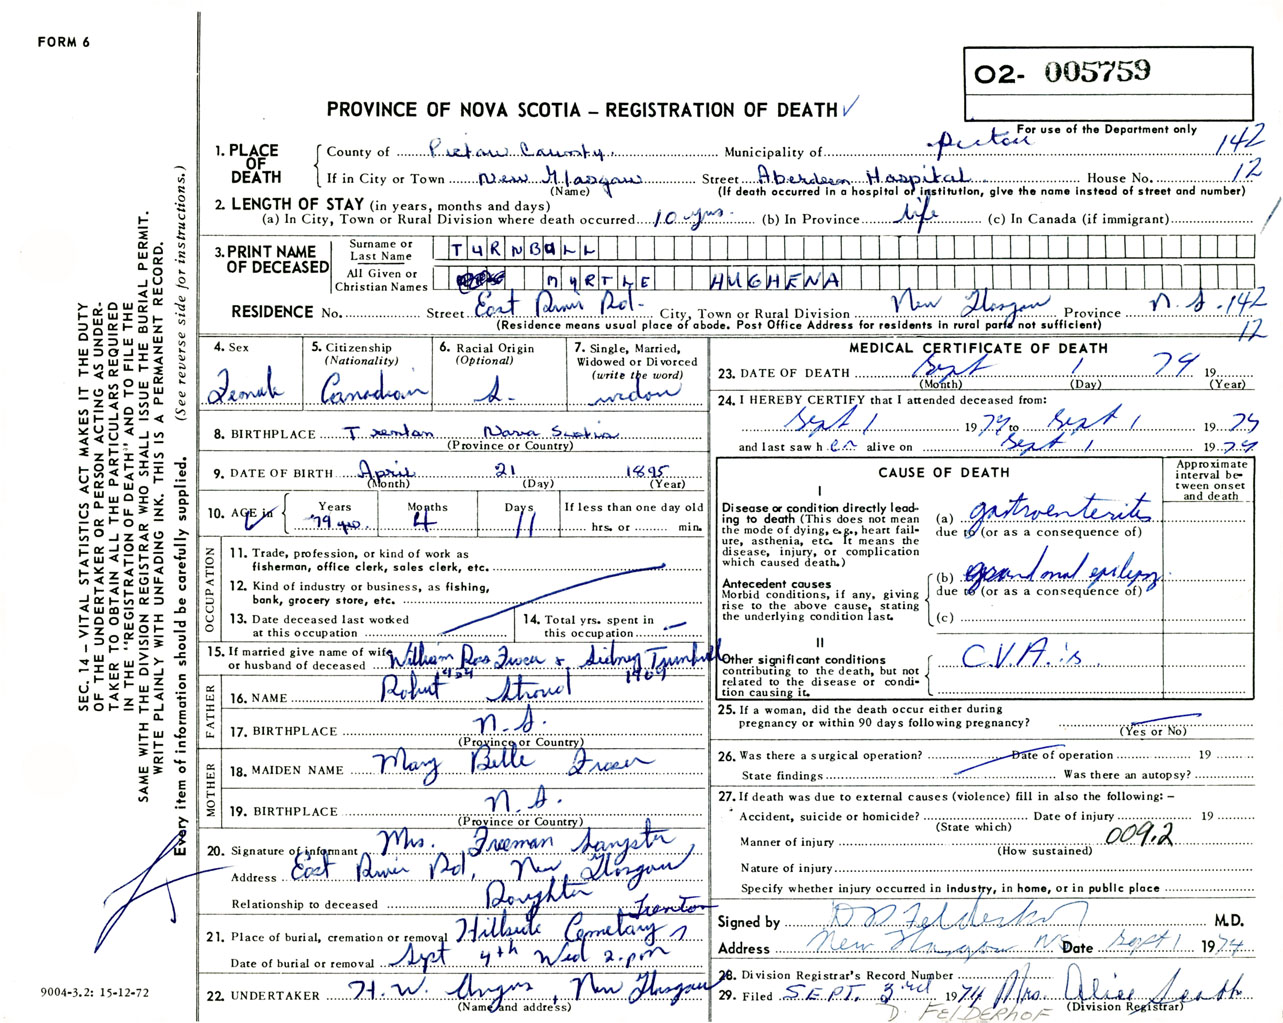 FORM 6
O2- 005759
PROVINCE OF NOVA SCOTIA – REGISTRATION OF DEATH ✓
For use of the Department only
SEC. 14 – VITAL STATISTICS ACT MAKES IT THE DUTY
OF THE UNDERTAKER OR PERSON ACTING AS UNDER-
TAKER TO OBTAIN ALL THE PARTICULARS REQUIRED
IN THE "REGISTRATION OF DEATH" AND TO FILE THE
SAME WITH THE DIVISION REGISTRAR WHO SHALL ISSUE THE BURIAL PERMIT.
WRITE PLAINLY WITH UNFADING INK. THIS IS A PERMANENT RECORD.
Every item of information should be carefully supplied. (See reverse side for instructions.)
1. PLACE OF DEATH
County of Pictou County Municipality of Pictou 142
If in City or Town New Glasgow Street Aberdeen Hospital House No. 12
(Name) (If death occurred in a hospital of institution, give the name instead of street and number)
2. LENGTH OF STAY (in years, months and days)
(a) In City, Town or Rural Division where death occurred 10 yrs. (b) In Province life (c) In Canada (if immigrant)
3. PRINT NAME OF DECEASED
Surname or Last Name TURNBULL
All Given or Christian Names MYRTLE HUGHENA
RESIDENCE No. Street East River Rd. City, Town or Rural Division New Glasgow Province N.S. 142
(Residence means usual place of abode. Post Office Address for residents in rural parts not sufficient) 12
4. Sex Female
5. Citizenship (Nationality) Canadian
6. Racial Origin (Optional) S.
7. Single, Married, Widowed or Divorced (write the word) widow
8. BIRTHPLACE Trenton Nova Scotia
(Province or Country)
9. DATE OF BIRTH April 21 1895
(Month) (Day) (Year)
10. AGE in Years 79 yrs. Months 4 Days 11 If less than one day old hrs. or min.
OCCUPATION
11. Trade, profession, or kind of work as fisherman, office clerk, sales clerk, etc.
12. Kind of industry or business, as fishing, bank, grocery store, etc.
13. Date deceased last worked at this occupation
14. Total yrs. spent in this occupation
15. If married give name of wife or husband of deceased William Ros Fraser & Sidney Turnbull
1909
FATHER
16. NAME Robert Stroud
17. BIRTHPLACE N.S.
(Province or Country)
MOTHER
18. MAIDEN NAME Mary Belle Fraser
19. BIRTHPLACE N.S.
(Province or Country)
20. Signature of informant Mrs. Freeman Sangster
Address East River Rd, New Glasgow
Relationship to deceased Daughter
21. Place of burial, cremation or removal Hillside Cemetary Trenton
Date of burial or removal Sept 4th Wed 2 pm
22. UNDERTAKER H.W. Angus, New Glasgow
(Name and address)
9004-3.2: 15-12-72
MEDICAL CERTIFICATE OF DEATH
23. DATE OF DEATH Sept 1 74 19
(Month) (Day) (Year)
24. I HEREBY CERTIFY that I attended deceased from:
Sept 1 1974 to Sept 1 1974
and last saw her alive on Sept 1 1974
CAUSE OF DEATH
Approximate interval between onset and death
I
Disease or condition directly leading to death (This does not mean the mode of dying, e.g., heart failure, asthenia, etc. It means the disease, injury, or complication which caused death.)
(a) gastroenterites
due to (or as a consequence of)
Antecedent causes
Morbid conditions, if any, giving rise to the above cause, stating the underlying condition last.
(b) grand mal epilepsy
due to (or as a consequence of)
(c)
II
Other significant conditions contributing to the death, but not related to the disease or condition causing it.
C.V.A.'s
25. If a woman, did the death occur either during pregnancy or within 90 days following pregnancy?
(Yes or No)
26. Was there a surgical operation? Date of operation 19
State findings Was there an autopsy?
27. If death was due to external causes (violence) fill in also the following: –
Accident, suicide or homicide? Date of injury 19
(State which)
Manner of injury 009.2
(How sustained)
Nature of injury
Specify whether injury occurred in Industry, in home, or in public place
Signed by D D Felderhof M.D.
Address New Glasgow NS Date Sept 1 1974
28. Division Registrar's Record Number
29. Filed SEPT. 3rd 1974 Mrs. Alice Scott
(Division Registrar)
D. FELDERHOF